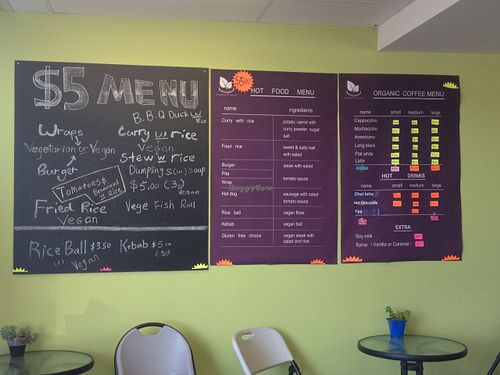 $5 MENU
B.B.Q Duck w Rice
Wraps
Vegetarian or Vegan
Burger
Curry w rice
Vegan
Stew w rice
Tomatoes &
w Rice
Dumpling S(w) Soup
$5.00
Vegan
Fried Rice
Vegan
Vege Fish Roll
Rice Ball $3.50
!!! Vegan
Kebab $5.00
HOT FOOD MENU
name ingredients
Curry with rice potato, carrot with
curry powder, sugar
salt
Fried rice sweet & salty ball
with salad
Burger steak with salad
Pita tomato sauce
Wrap
Hot dog sausage with salad
tomato sauce
Rice ball vegan floss
Kebab vegan ball
Gluten free choice vegan steak with
salad and rice
HappyCow
ORGANIC COFFEE MENU
name small medium large
Cappuccino
Mochaccino
Americano
Long black
Flat white
Latte
HOT DRINKS
name small medium large
Chai latte
Hot Chocolate
Tea
EXTRA
Soy milk
Syrup (Vanilla or Caramel)